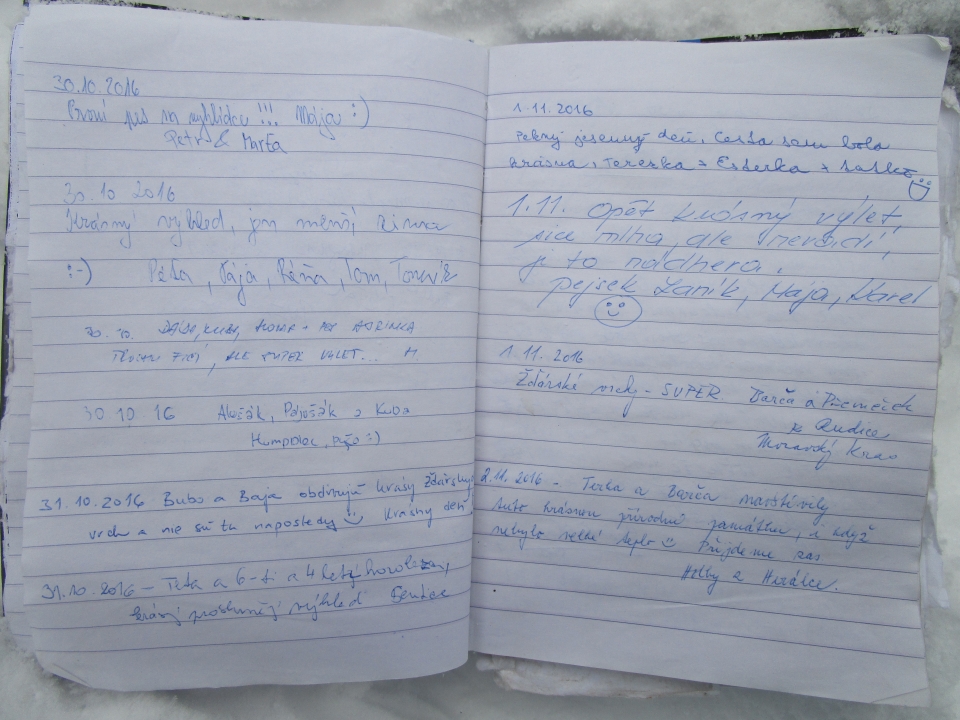 30.10.2016
První pes na vyhlídce !!! Mája :)
Petr & Marťa
30.10 2016
Krásný výhled, jen menší zima
:-) Péťa, Pája, Táňa, Tom, Tomík
30.10.
, ALE SUPER VÝLET...
30 10 16 a Kuba
Humpolec, :)
31.10.2016 Bubo a Baja obdivujú krásy Žďárskych
vrchov a nie sú tu naposledy Krásny deň
31.10.2016 - Teta a 6-ti a 4 letý horolezec,
výhled
1.11.2016
Pekný jesenný deň. Cesta sem bola
krásna. Terezka + Esterka +
1.11. Opět krásný výlet,
sice mlha, ale nevadí,
je to nádhera.
pejsek Žaník, Mája, Karel
1.11.2016
Žďárské vrchy - SUPER. Barča a Přemeček
z Rudice
Moravský Kras
2.11.2016 - Terka a Barča navštívily
tuto krásnou přírodní památku, i když
nebylo velké teplo Přijdeme zas
Holky z Herálce.